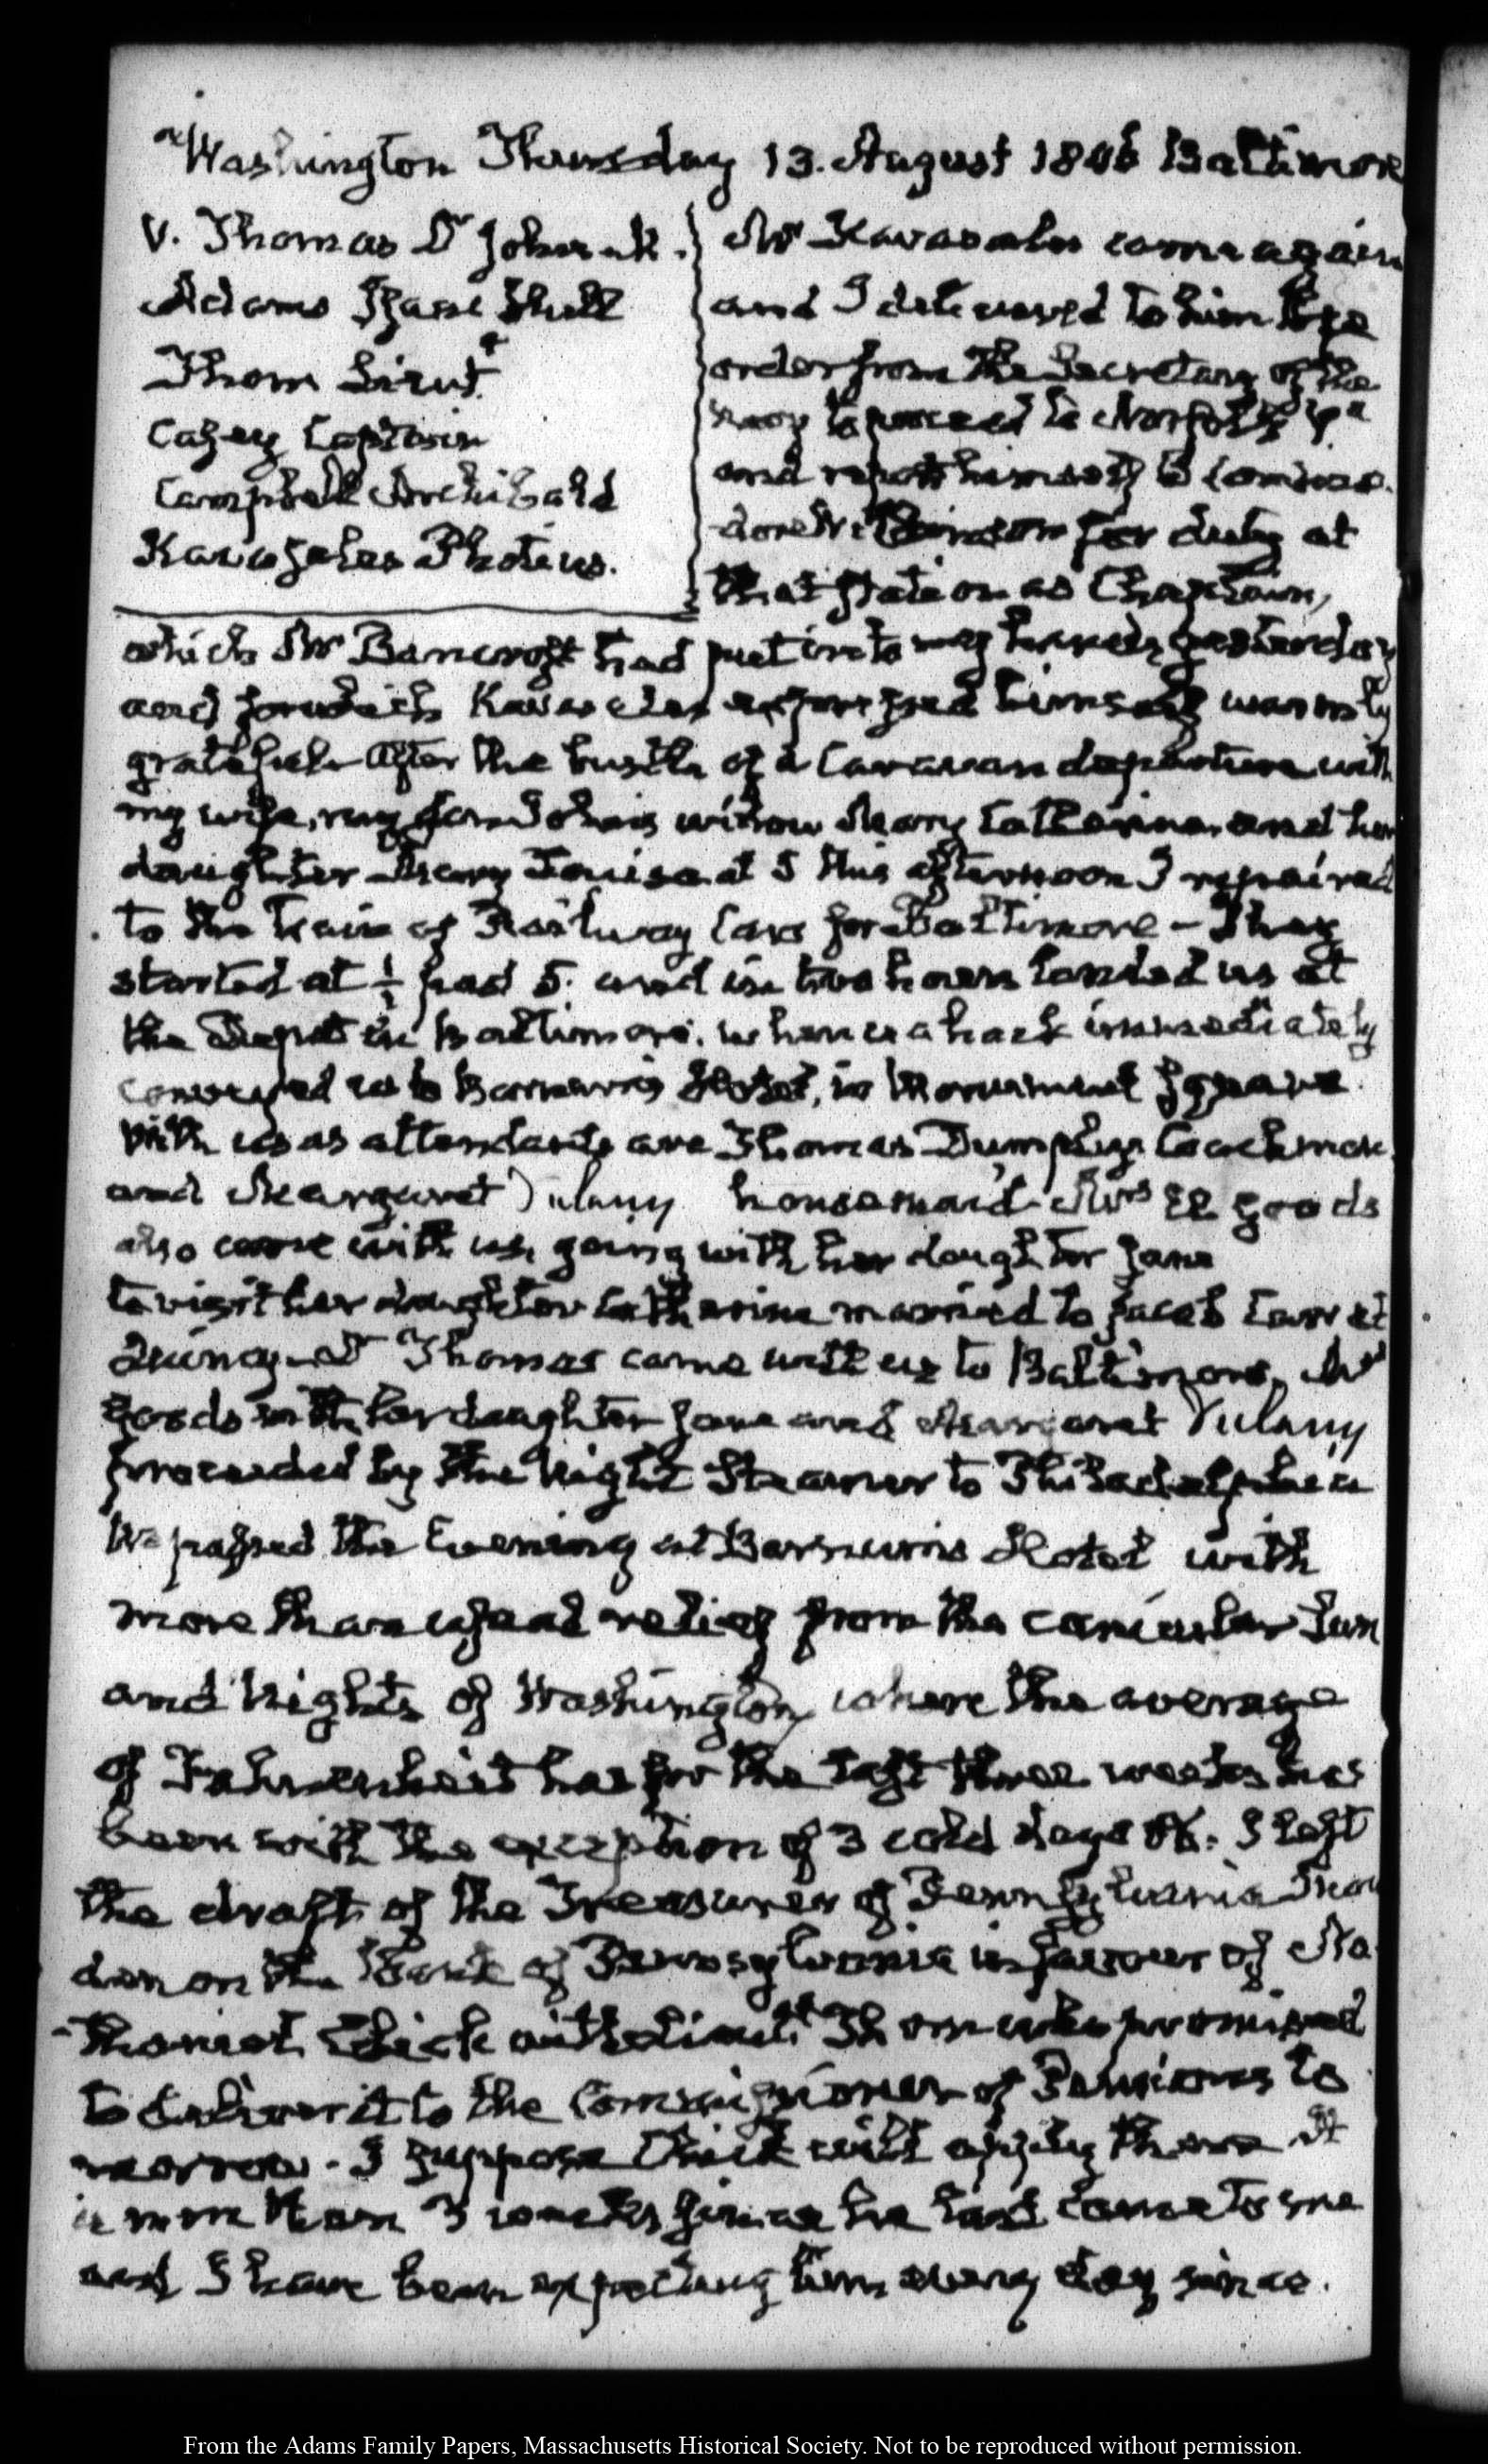 Washington Thursday 13. August 1846 Baltimore
V. Thomas Dr John M.
Adams Isaac Hull
Thom Lieut
Casey Captain
Campbell Archibald
Kavasales Photius.
Mr Kavasales came again
and I delivered to him the
order from the Secretary of the
Navy to proceed to Norfolk Va
and report himself to Commo-
dore Wilkinson for duty at
that station as Chaplain,
which Mr Bancroft had put into my hands yesterday
and for which Kavasales expressed himself warmly
grateful. After the bustle of a Caravan departure with
my wife, my son John's widow Mary Catherine, and her
daughter Mary Louisa at 5 this afternoon I repaired
to the train of Railway Cars for Baltimore - They
started at ½ past 5. and in two hours landed us at
the Depot in Baltimore. whence a hack immediately
conveyed us to Barnum's Hotel, in Monument Square.
With us as attendants are Thomas Dumplin Coachman
and Margaret Dulany housemaid. Mrs Goods
also came with us, going with her daughter Jane
to visit her daughter Catherine married to Jacob Carr at
Quincy. Dr Thomas came with us to Baltimore, Mrs
Goods with her daughter Jane and Margaret Dulany
proceeded by the Night Steamer to Philadelphia
We passed the Evening at Barnum's Hotel with
more than usual relief from the canicular Sun
and Nights of Washington, where the average
of Fahrenheit has for the last three weeks has
been with the exception of 3 cold days 86. I left
the draft of the Treasurer of Pennsylvania
on the Bank of Pennsylvania in favour of Na-
thaniel Chick with Lieutt Thom who promised
to deliver it to the Commissioner of Pensions to
morrow. I suppose Chick will apply there It
is more than 3 weeks since he last came to me
and I have been expecting him every day since.
From the Adams Family Papers, Massachusetts Historical Society. Not to be reproduced without permission.